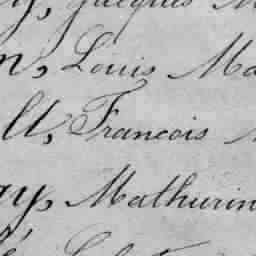 y, Jacques M
n, Louis Ma
ll, Francois
ay, Mathurin